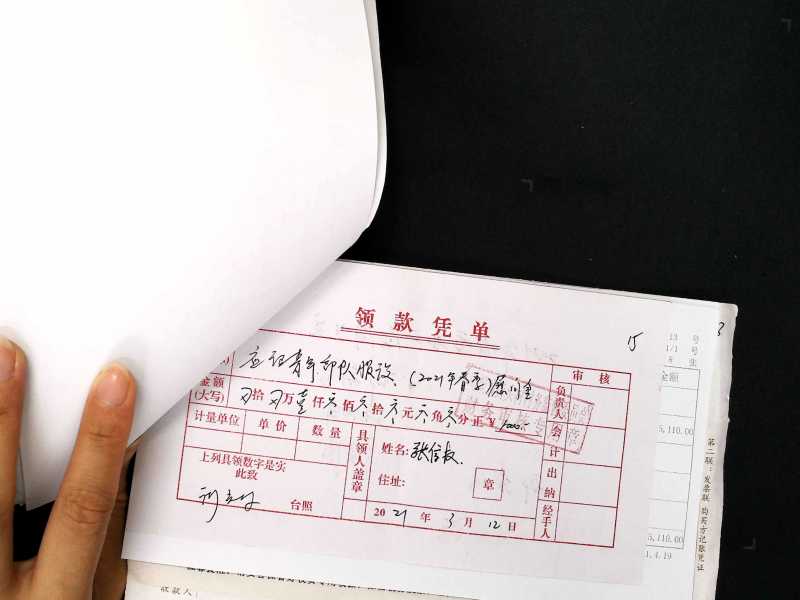 15
3
领款凭单
应征青年部队服役、(2021年春季)慰问金
审核
金额(大写) 拾 万 壹仟 零佰 零拾 零元 零角 零分 正 ¥ 1000.-
负责人
计量单位 单价 数量
具领人盖章
姓名:张信权
会计
上列具领数字是实
此致
住址:
章
出纳
台照
2021年3月12日
经手人
13 号
1/1 号
张
金额
5,110.00
5,110.00
1.4.19
第二联:发票联 购买方记账凭证
收款人: